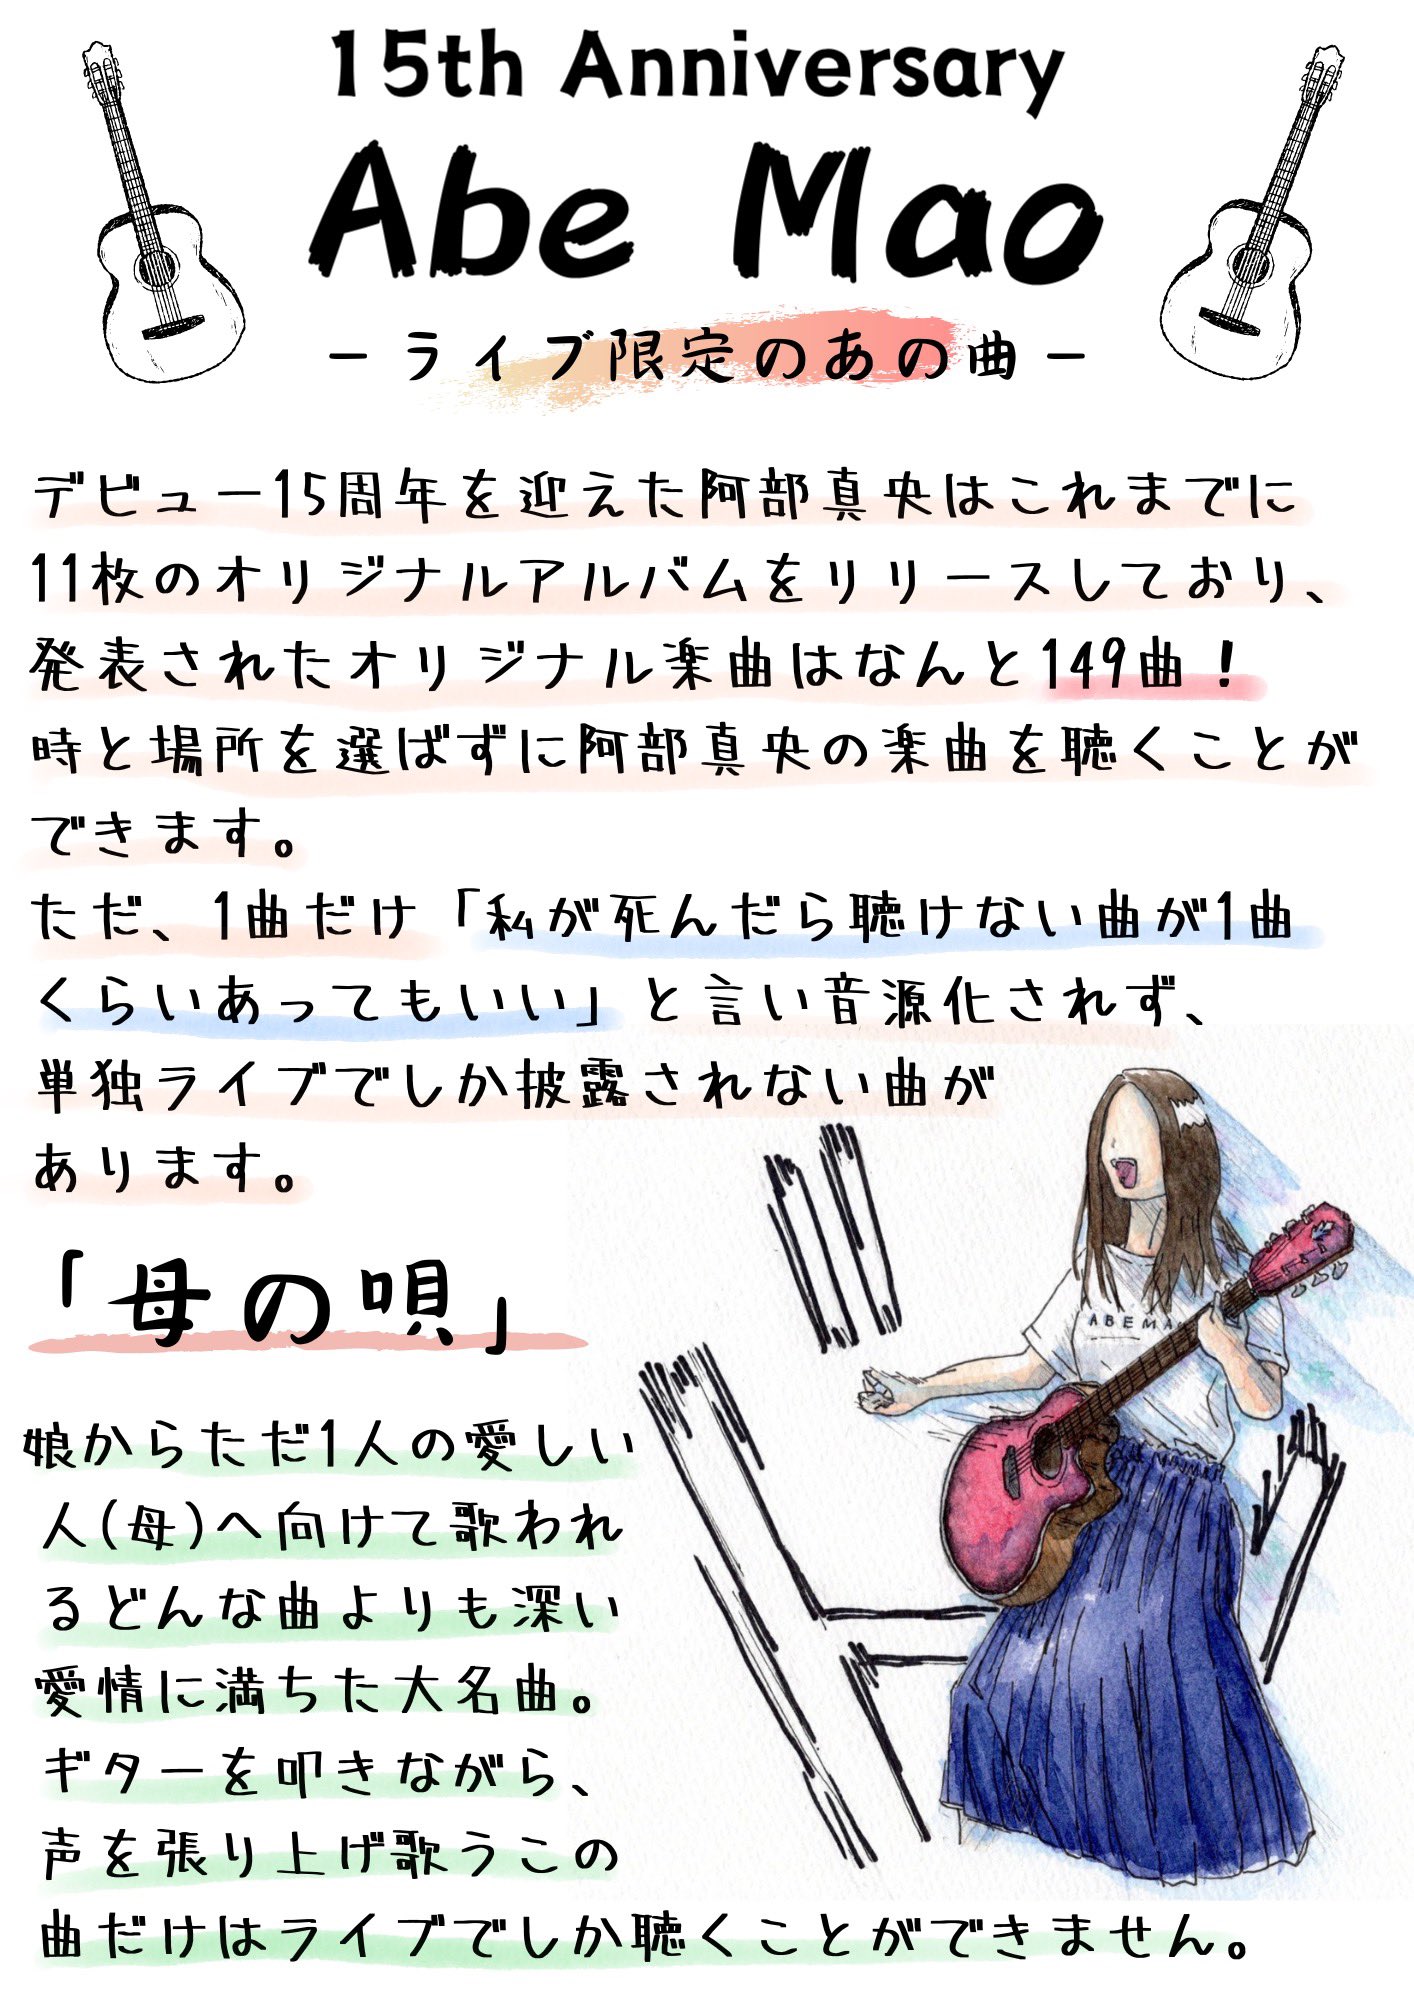 15th Anniversary
Abe Mao
－ライブ限定のあの曲－
デビュー15周年を迎えた阿部真央はこれまでに
11枚のオリジナルアルバムをリリースしており、
発表されたオリジナル楽曲はなんと149曲！
時と場所を選ばずに阿部真央の楽曲を聴くことが
できます。
ただ、1曲だけ「私が死んだら聴けない曲が1曲
くらいあってもいい」と言い音源化されず、
単独ライブでしか披露されない曲が
あります。
「母の唄」
ABEMA
娘からただ1人の愛しい
人(母)へ向けて歌われ
るどんな曲よりも深い
愛情に満ちた大名曲。
ギターを叩きながら、
声を張り上げ歌うこの
曲だけはライブでしか聴くことができません。